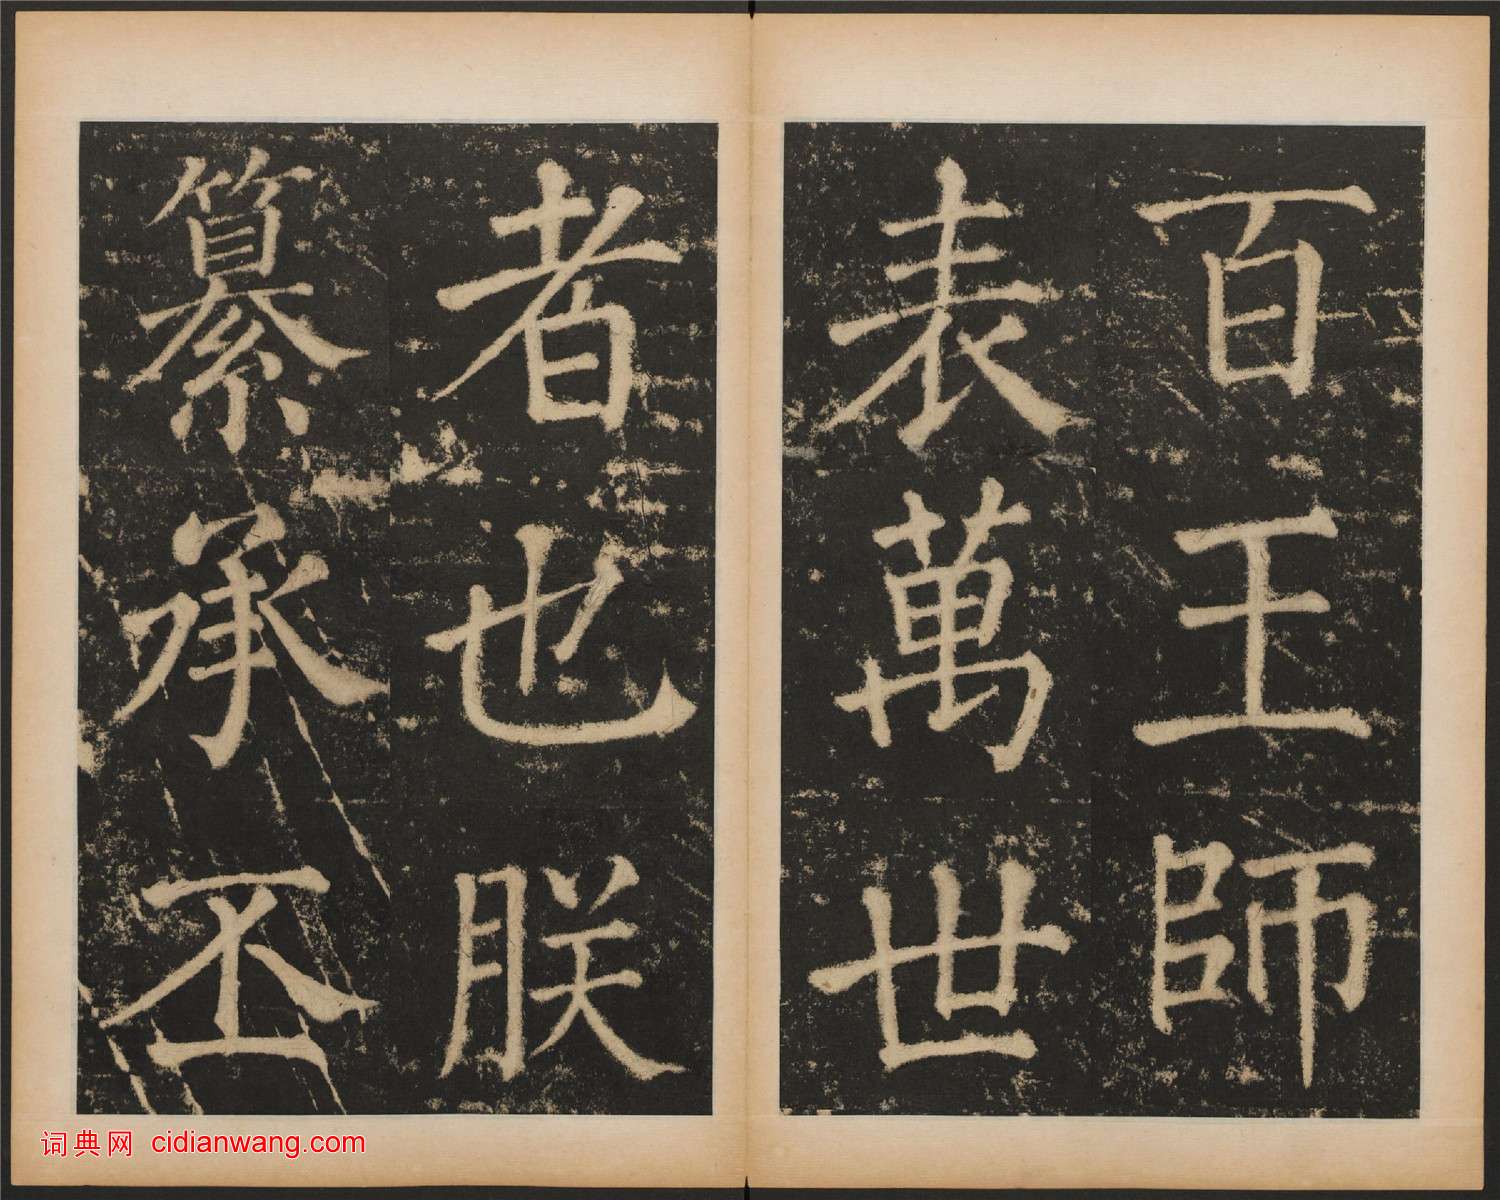 百王師
表萬世
者也朕
纂承丕
词典网 cidianwang.com